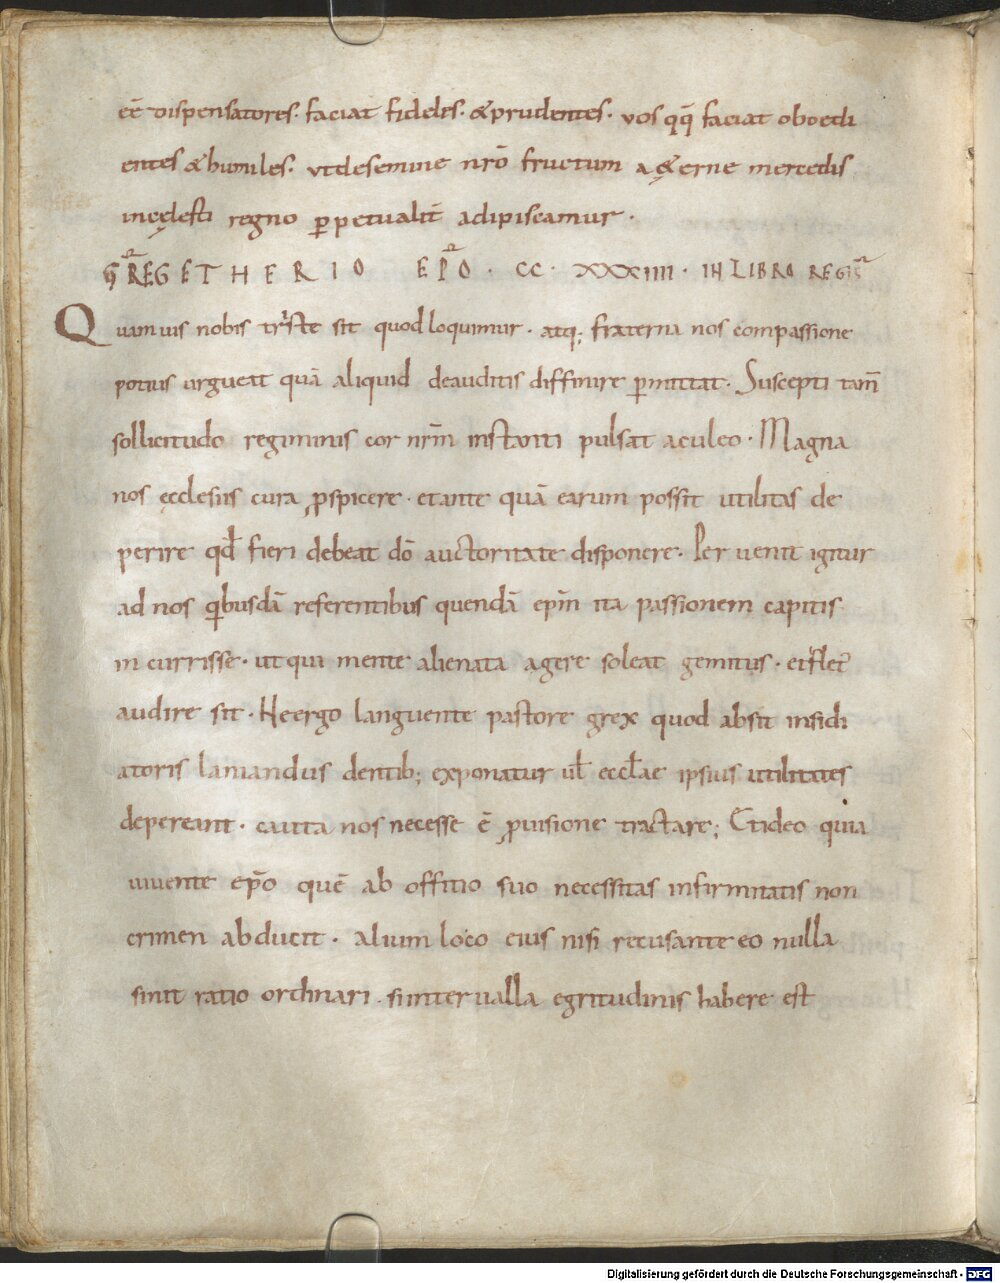 eē dispensatores· faciat fideles· &prudentes· vos qq̄ faciat oboedi
entes &humiles· vtdesemine nr̄o fructum a&erne mercedis
incęlesti regno ꝑpetualit̄ adipiscamur·
GREG ETHERIO EP̄O· CC· XXXIIII· IN LIBRO REGIS̄
Quamuis nobis triste sit quod loquimur· atq; fraterna nos compassione
potius urgueat quā aliquid deauditis diffinire ꝑmittat· Suscepti tam̄
sollicitudo regiminis cor nrm̄ instanti pulsat aculeo· Magna
nos ęcclesiis cura ꝓspicere· etante quā earum possit utilitas de
perire qd̄ fieri debeat dō auctoritate disponere· Per uenit igitur
ad nos qibusdā referentibus quendā ep̄m ita passionem capitis
in currisse· ut qui mente alienata agere soleat gemitus· et flet᷒
audire sit· Neergo languente pastore grex quod absit insidi
atoris laniandus dentib; exponatur ul̄ eccl̄ae ipsius utilitates
depereant· cauta nos necesse ē ꝓuisione tractare; Etideo quia
uiuente ep̄o quē ab offitio suo necessitas infirmitatis non
crimen abducit· alium loco eius nisi recusante eo nulla
sinit ratio ordinari· siinterualla egritudinis habere est
Digitalisierung gefördert durch die Deutsche Forschungsgemeinschaft - DFG